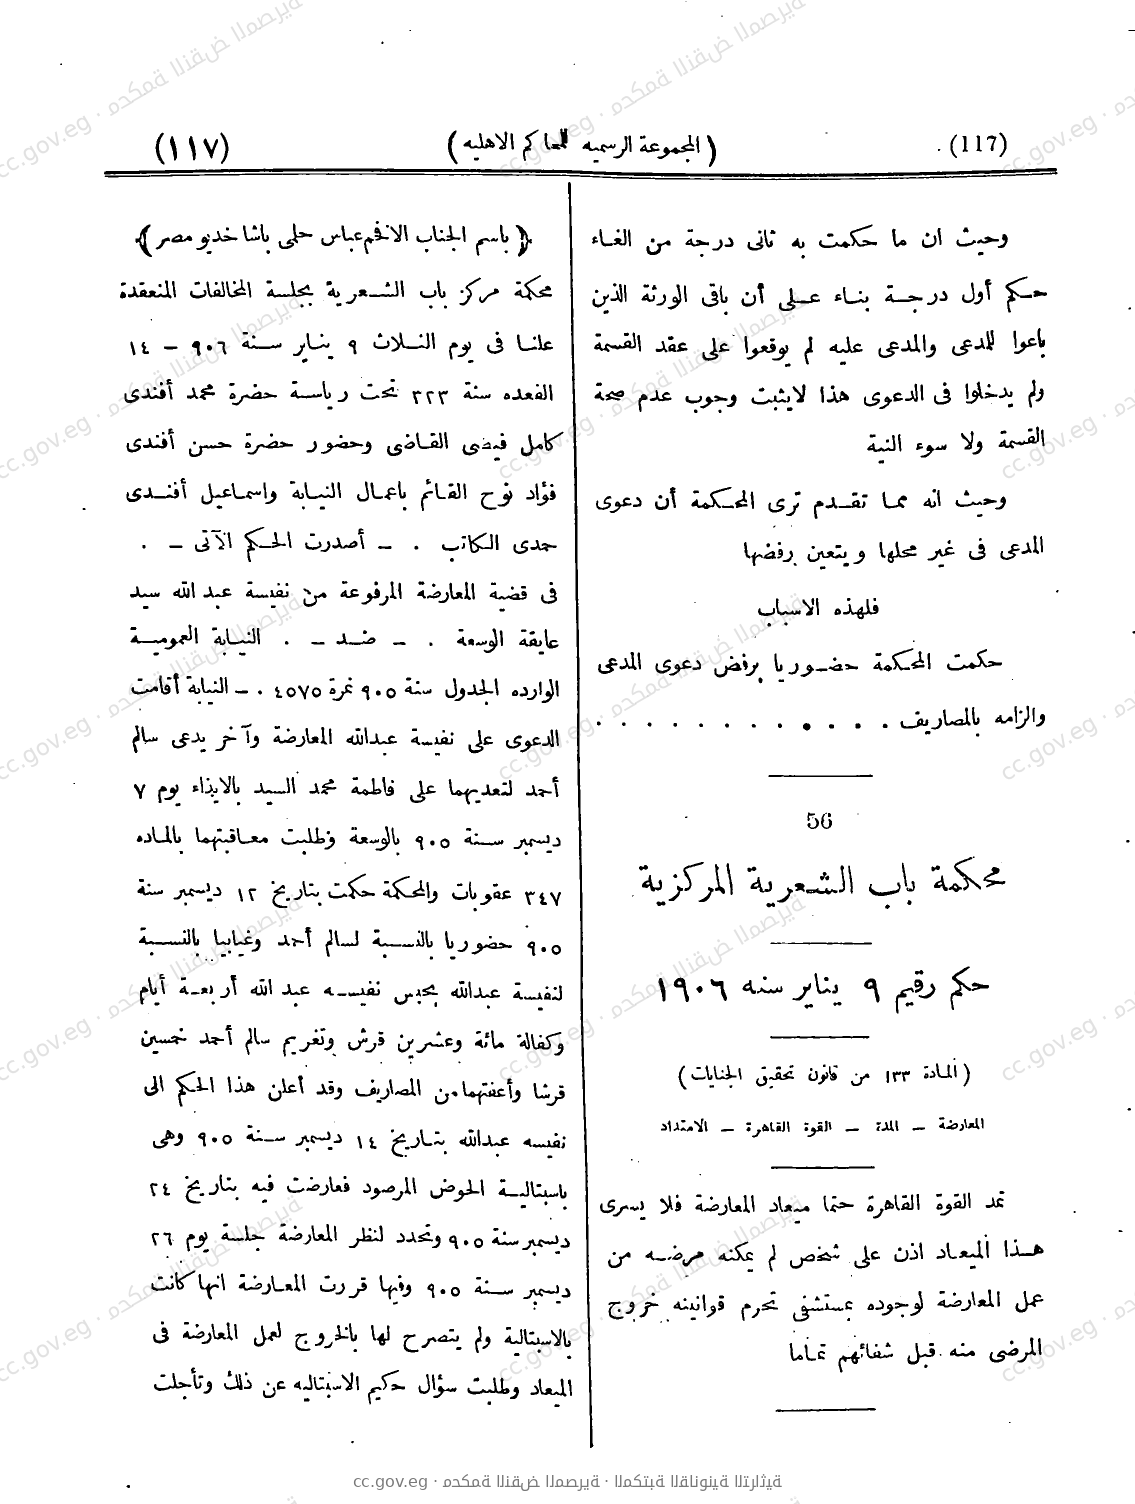 (117)
( المجموعة الرسميه للمحاكم الاهليه )
(١١٧)
وحيث ان ما حكمت به ثانى درجة من الغاء
حكم أول درجة بناء على أن باقى الورثة الذين
باعوا للمدعى والمدعى عليه لم يوقعوا على عقد القسمة
ولم يدخلوا فى الدعوى هذا لايثبت وجوب عدم صحة
القسمة ولا سوء النية
وحيث انه مما تقدم ترى المحكمة أن دعوى
المدعى فى غير محلها ويتعين رفضها
فلهذه الاسباب
حكمت المحكمة حضوريا برفض دعوى المدعى
والزامه بالمصاريف . . . . . . . . . . . .
56
محكمة باب الشعرية المركزية
حكم رقيم ٩ يناير سنه ١٩٠٦
( المادة ١٣٣ من قانون تحقيق الجنايات )
المعارضة – المدة – القوة القاهرة – الامتداد
تمد القوة القاهرة حتما ميعاد المعارضة فلا يسرى
هذا الميعاد اذن على شخص لم يمكنه مرضه من
عمل المعارضة لوجوده بمستشفى تحرم قوانينه خروج
المرضى منه قبل شفائهم تماما
﴿ باسم الجناب الافخم عباس حلمى باشا خديو مصر ﴾
محكمة مركز باب الشعرية بجلسة المخالفات المنعقدة
علنا فى يوم الثلاث ٩ يناير سنة ٩٠٦ – ١٤
القعده سنة ٣٢٣ تحت رياسة حضرة محمد أفندى
كامل فيضى القاضى وحضور حضرة حسن أفندى
فؤاد نوح القائم باعمال النيابة واسماعيل أفندى
حمدى الكاتب . – أصدرت الحكم الآتى – .
فى قضية المعارضة المرفوعة من نفيسة عبد الله سيد
عايقة الوسعة . – ضد – . النيابة العمومية
الوارده الجدول سنة ٩٠٥ نمرة ٤٥٧٥ . – النيابة أقامت
الدعوى على نفيسة عبدالله المعارضة وآخر يدعى سالم
أحمد لتعديهما على فاطمة محمد السيد بالايذاء يوم ٧
ديسمبر سنة ٩٠٥ بالوسعة وطلبت معاقبتهما بالماده
٣٤٧ عقوبات والمحكمة حكمت بتاريخ ١٢ ديسمبر سنة
٩٠٥ حضوريا بالنسبة لسالم أحمد وغيابيا بالنسبة
لنفيسة عبدالله بحبس نفيسه عبد الله أربعة أيام
وكفالة مائة وعشرين قرش وتغريم سالم أحمد خمسين
قرشا وأعفتهما من المصاريف وقد أعلن هذا الحكم الى
نفيسه عبدالله بتاريخ ١٤ ديسمبر سنة ٩٠٥ وهى
باسبتالية الحوض المرصود فعارضت فيه بتاريخ ٢٤
ديسمبر سنة ٩٠٥ وتحدد لنظر المعارضة جلسة يوم ٢٦
ديسمبر سنة ٩٠٥ وفيها قررت المعارضة انها كانت
بالاسبتالية ولم يتصرح لها بالخروج لعمل المعارضة فى
الميعاد وطلبت سؤال حكيم الاسبتاليه عن ذلك وتأجلت
cc.gov.eg · محكمة النقض المصرية · المكتبة القانونية التراثية